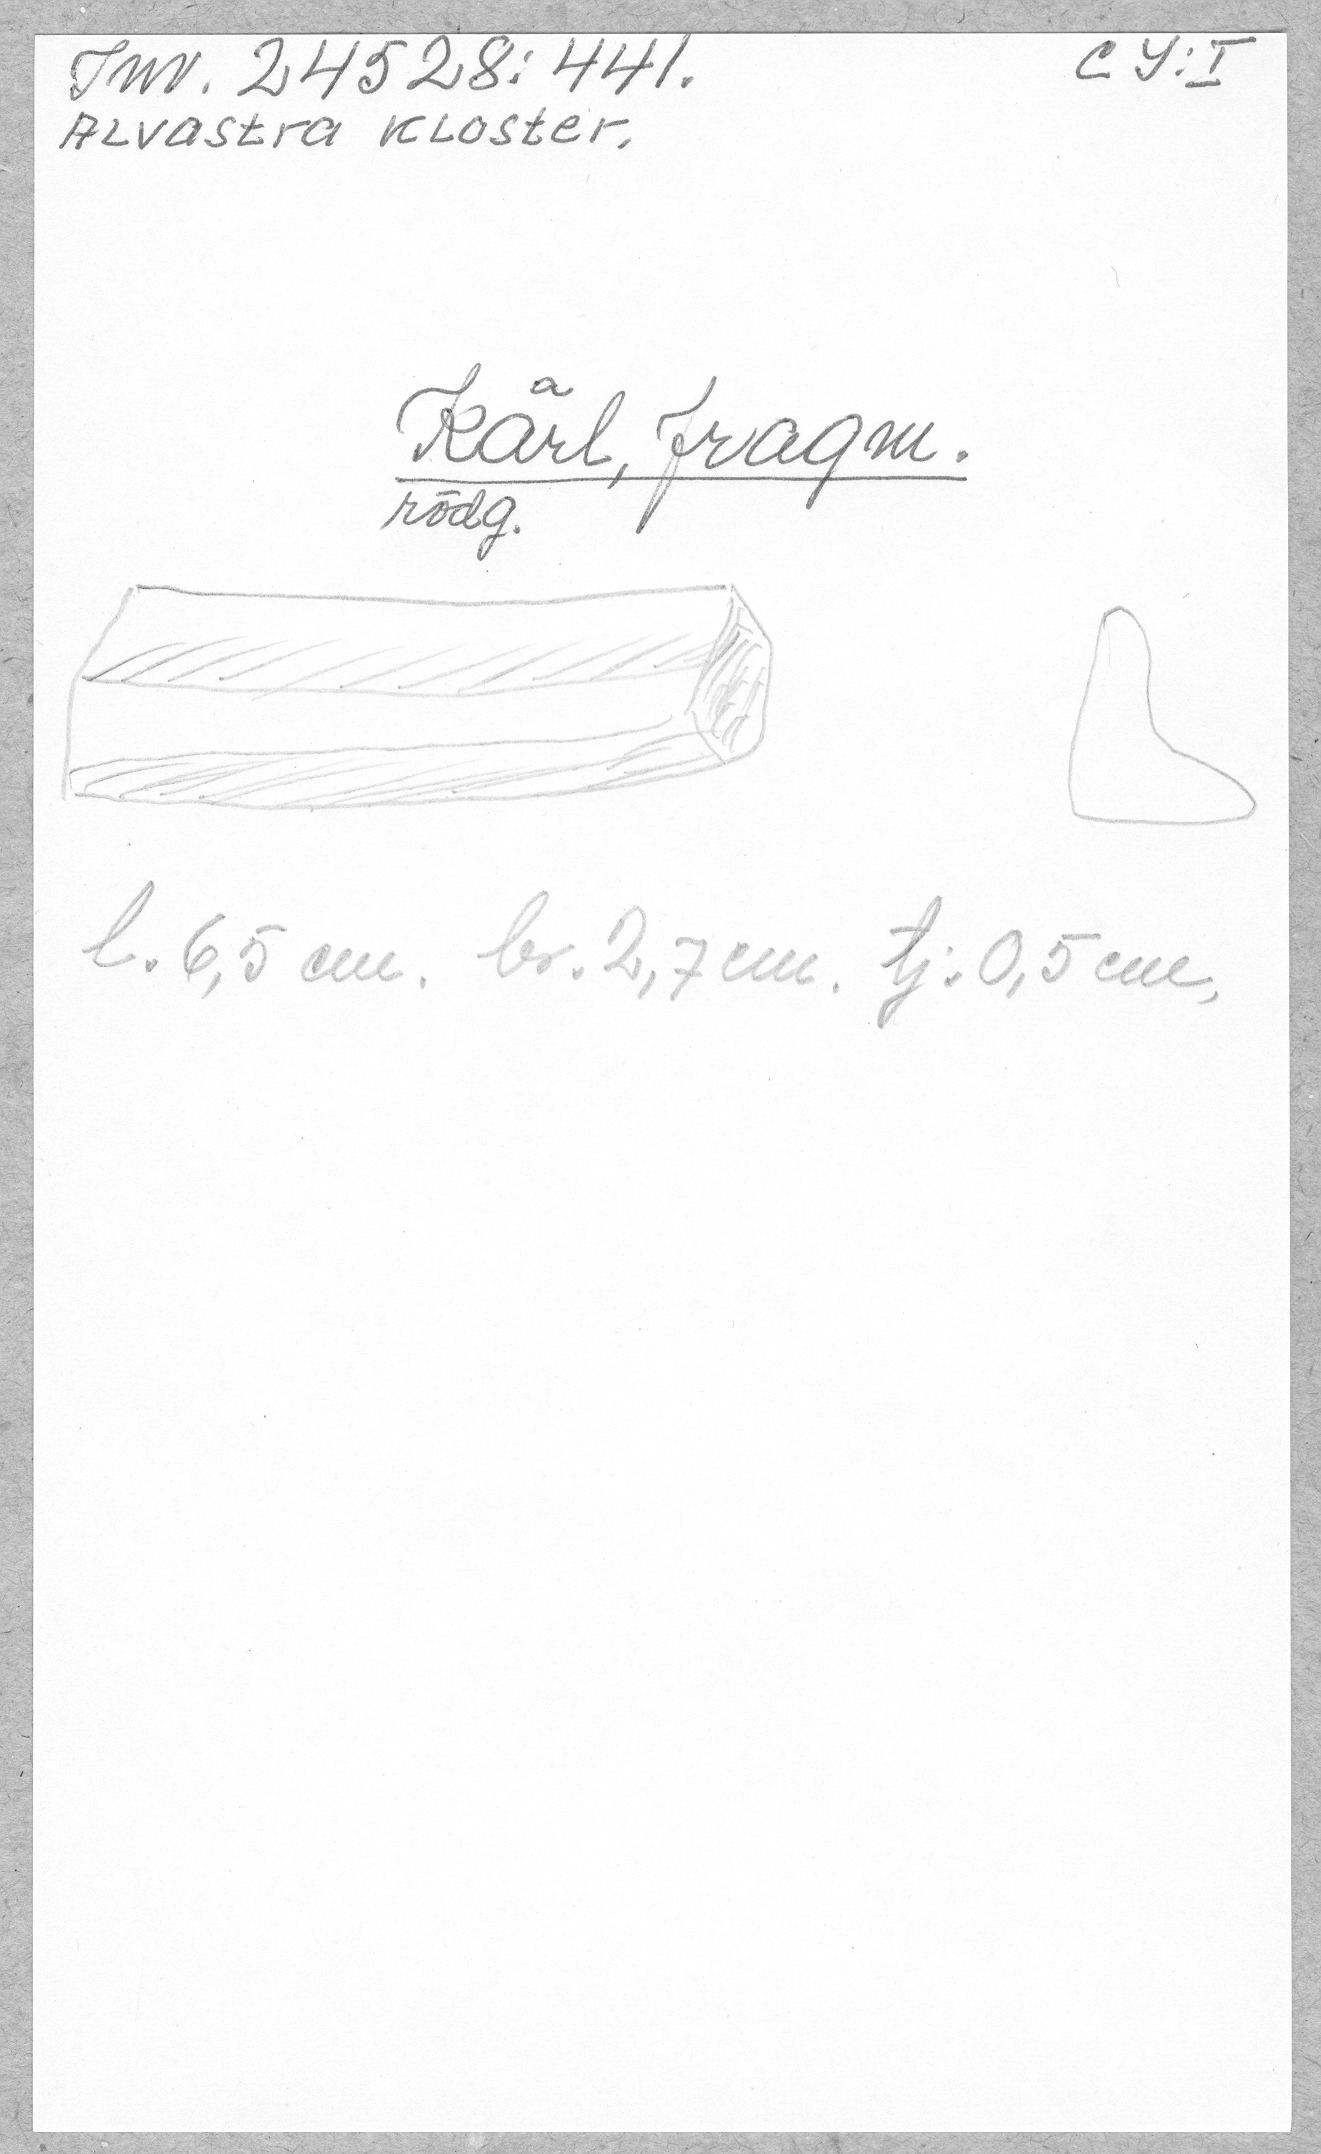 Inv. 24528:441.
C Y:I
Alvastra Kloster.
Kärl, fragm.
rödg.
l. 6,5 cm. br. 2,7 cm. tj: 0,5 cm,